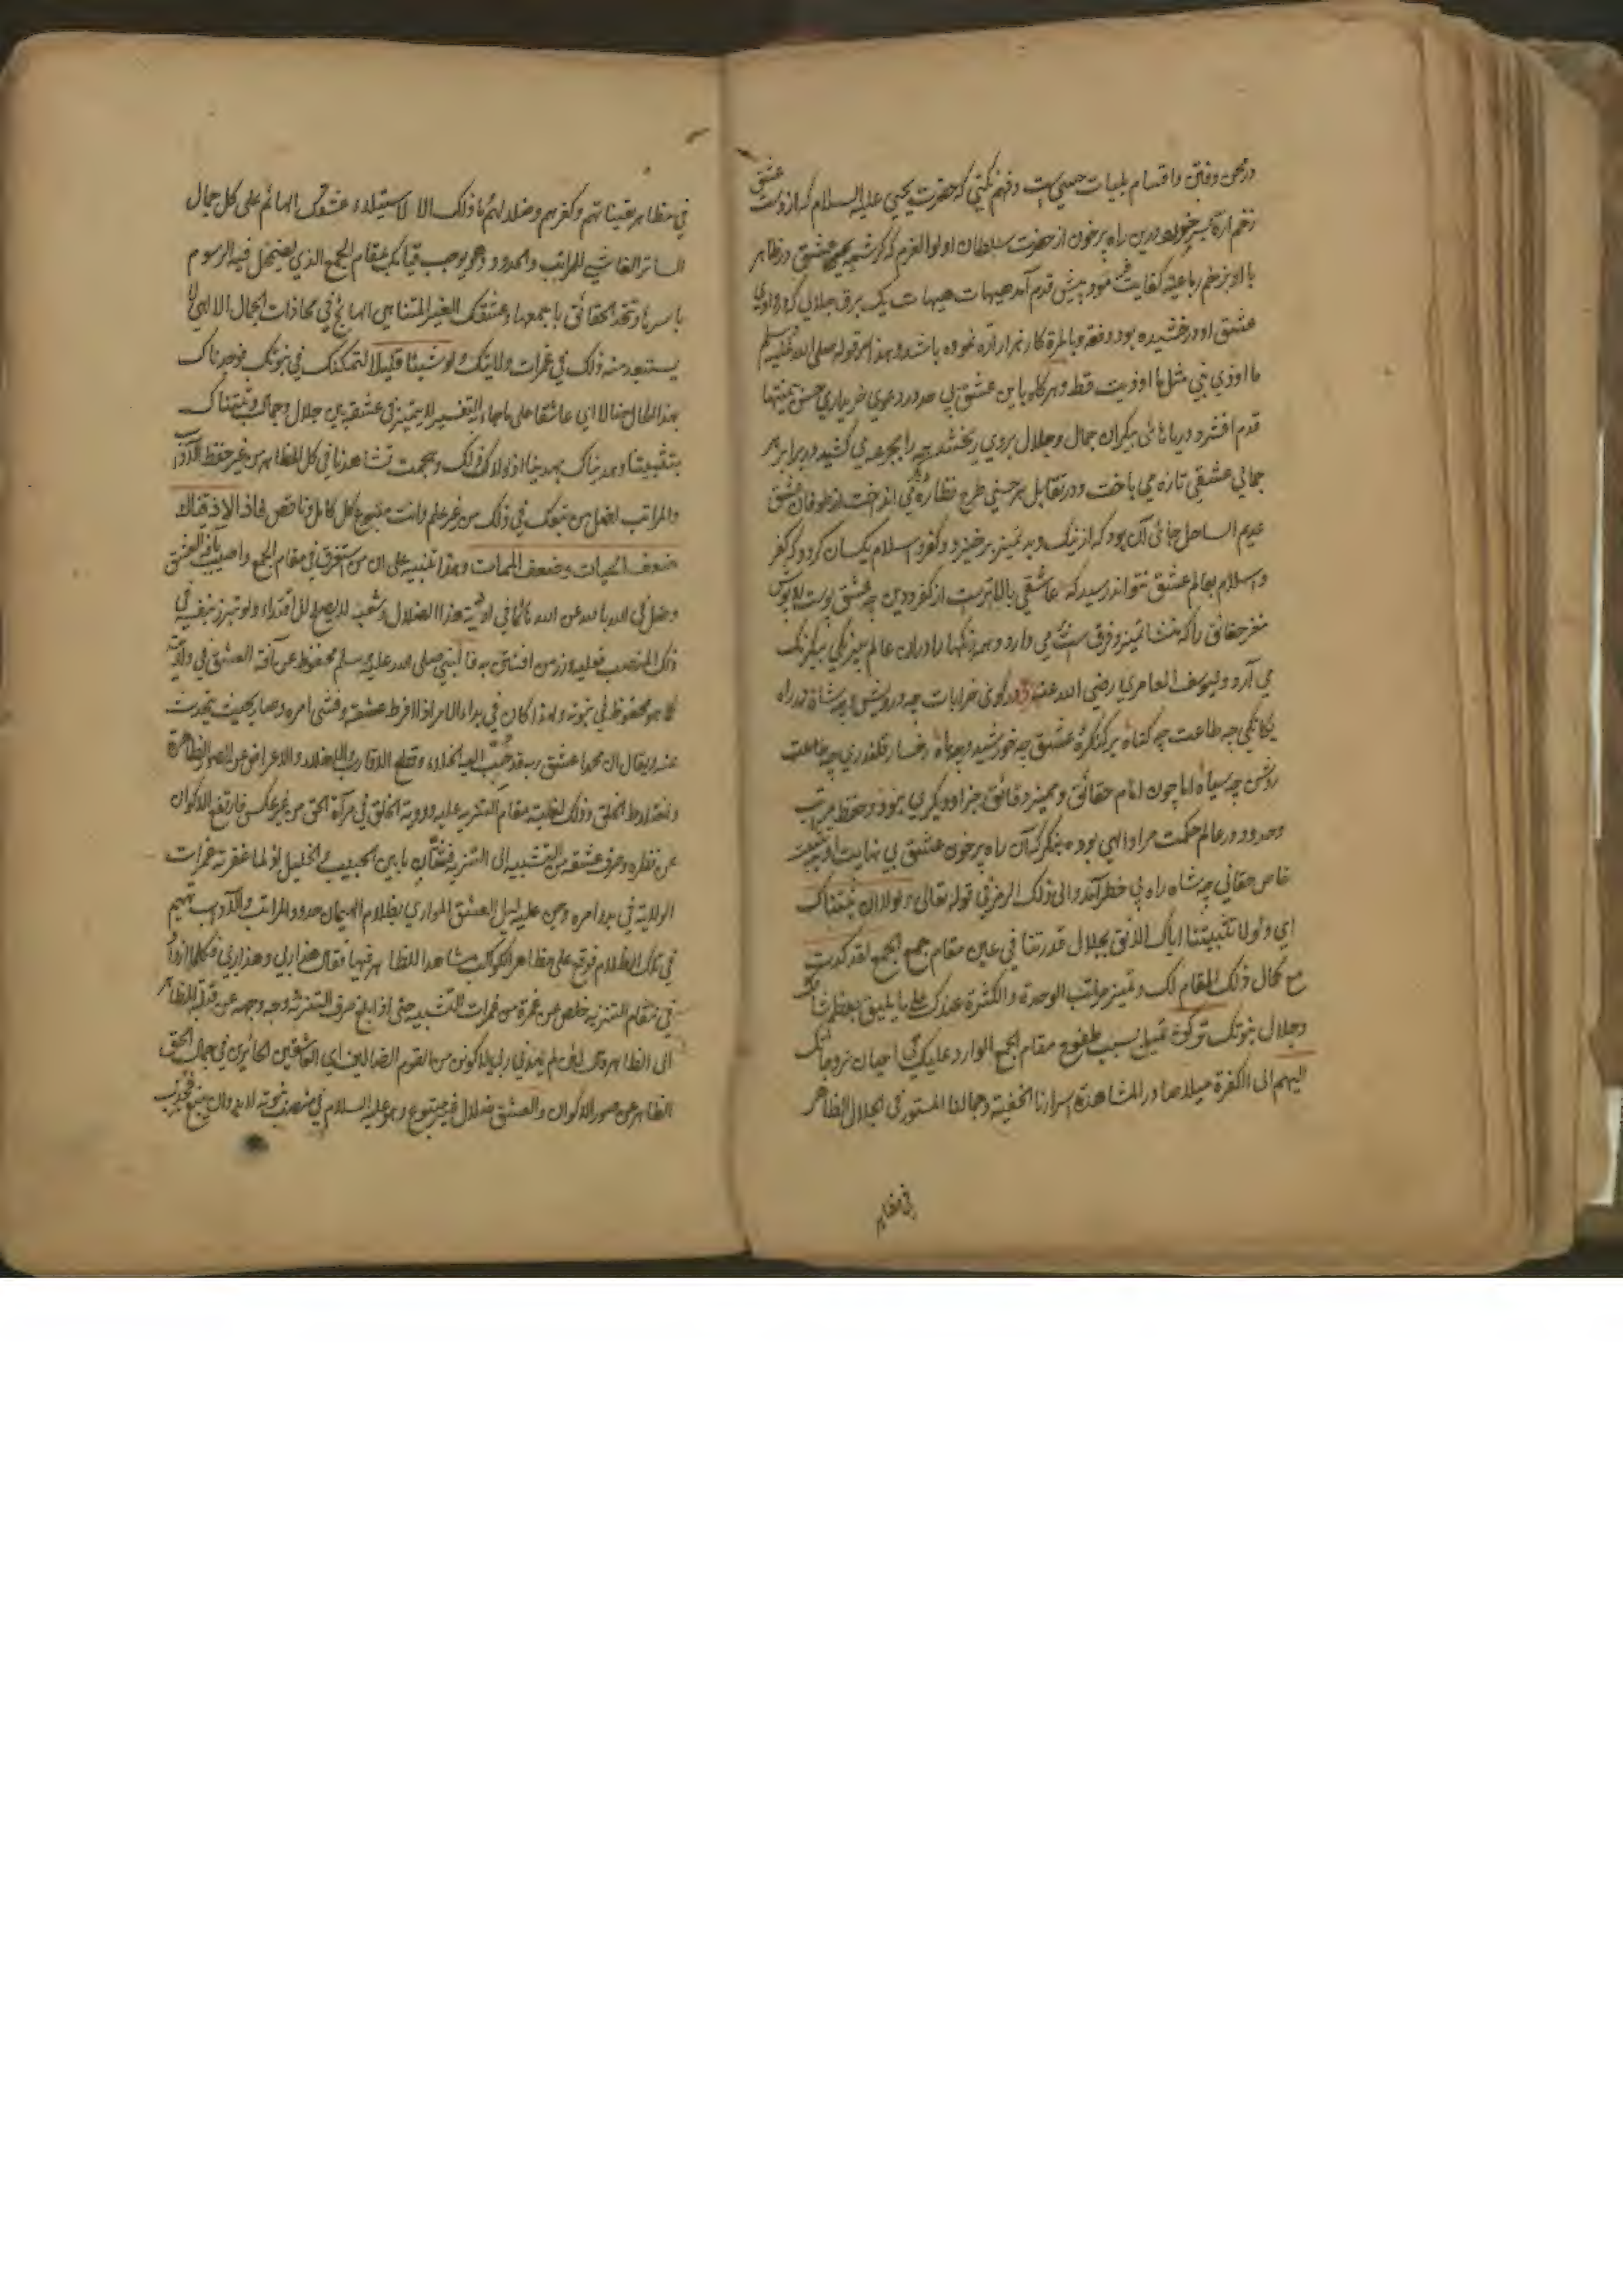 در محن و فتن و اقسام بلیات حسی است و فهم نکنی که حضرت یحیی علیه السلام که از دست عشق
زخم اره بسر خورد درین راه پر خون از حضرت سلطان اولوا العزم که کرشمه عشق در ظاهر
با او بزخم رباعیه کفایت نمود پیش قدم آمد هیهات هیهات یک برق جلالی که
عشق او درخشیده بود دفعة و بالمرة کار هزار اره نموده باشد و هذا سر قوله صلی الله علیه وسلم
ما اوذی نبی مثل ما اوذیت قط و هرگاه باین عشق بی حد در دعوی خریداری حسن بی منتها
قدم افشرد و دریاهائی بیکران جمال و جلال بروی ریختند همه را بجرعه کشید و در برابر هر
جمالی عشقی تازه می باخت و در تقابل هر حسنی طرح نظاره می انداخت از طوفان عشق
عدیم الساحل جائی آن بود که از نیک و بد تمیز برخیزد و کفر و اسلام یکسان گردد که کفر
و اسلام بعالم عشق نتواند رسید که عاشقی بالاتر است از کفر و دین چه عشق پوست
مغز حقائق را که منشا تمیز و فرق است می دارد و همه رنگها را دران عالم بیرنگی بیکرنگ
می آرد ولیوسف العامری رضی الله عنه در کوئی خرابات چه درویش چه شاه در راه
یکانکی چه طاعت چه گناه بر کنگره عشق چه خورشید چه ماه رخسار قلندری چه
روشن چه سیاه اما چون امام حقائق و ممیز دقائق جز او دیگری نبود و حفظ مراتب
و حدود در عالم حکمت مراد الهی بود بنگر که آن راه پر خون عشق بی نهایت او
خاص حقانی چه شاه راه بی خطر آمد و الی ذلک الرمز فی قوله تعالی ولولا ان ثبتناک
ای ولولا تثبیتنا ایاک الائق بجلال قدرتنا فی عین مقام جمع الجمع لقد کدت
مع کمال ذلک المقام لک و تمیز مراتب الوحدة والکثرة عندک علی ما یلیق بعظم شانک
و جلال نبوتک ترکن قبیل بسبب طفوح مقام الجمع الوارد علیک فی احیان
الیهم الی الکفرة میلا صادر المشاهدة اسرارنا الخفیة و جمالنا المستور فی الجلال الظاهر
فی مظاهر
فی مظاهر تعیناتهم و کفرهم و ضلالتهم ما ذلک الا لاستیلاء عشقک الهائم علی کل جمال
الساتر الغاشی للمراتب والحدود و هو یوجب قیامک بمقام الجمع الذی یضمحل فیه الرسوم
باسرها و تتحد الحقائق باجمعها و عشقک الغیر المتناهی الهائج فی محاذات الجمال الالهی لا
یستبعد منه ذلک فی غمرات ولایتک ولو شیئا قلیلا لتمکنک فی نبوتک فوجدناک
بهذا الحال ضالا ای عاشقا علی ما جاء فی التفسیر لا یتمیز فی عشقه بین جلال و جمال و ثبتناک
بتثبیتنا و هدیناک بهدینا اذ لولا ذلک و همت تشاهدنا فی کل المظاهر من غیر حفظ الآداب
والمراتب لضل من تبعک فی ذلک من غیر علم وانت متبوع لکل کامل و ناقص فاذا لاذقناک
ضعف الحیات و ضعف الممات و هذا تنبیه علی ان من استغرق فی مقام الجمع و اصیب بآفة العشق
و ضل فی الله بالله عن الله هائما فی اودیة هذا الضلال و شعبه لا یصلح للاقتداء ولو تبرز بنفسه فی
ذلک المنصب فعلیه وزر من اقتدی به فالنبی صلی الله علیه وسلم محفوظ عن آفة العشق فی ولایته
کما هو محفوظ فی نبوته ولهذا کان فی بداء الامر اذا افرط عشقه و فشی امره و صار بحیث یتحدث
عنه و یقال ان محمدا عشق ربه قد حبب الیه الخلاء و قطع الاقارب والاخلاء والاعراض عن الصور الظاهرة
و اختلاط الخلق و ذلک لغلبة مقام التنزیه علیه و رویة الخلق فی مرآة الحق من غیر عکس فارتفع الاکوان
عن نظره و صرف عشقه من التشبیه الی التنزیه فشتان ما بین الحبیب و الخلیل اذ لما غمرته غمرات
الولایة فی بدو امره و جن علیه لیل العشق المواری بظلام الهیمان حدود المراتب و الآداب تهیم
فی تلک الظلام فوقع علی مظاهر الکواکب مشاهدا للظاهر فیها فقال هذا ربی و هذا ربی فکلما ازداد
فی مقام التنزیه خلص عن غمرة من غمرات التشبیه حتی اذا بلغ صرف التنزیه وجه وجهه عن المظاهر
الی الظاهر وقال لئن لم یهدنی ربی لاکونن من القوم الضالین ای العاشقین الحائرین فی جمال الحق
الظاهر عن صور الاکوان والعشق ضلال غیر متبوع و هو علیه السلام فی منصب نبوته لا بد وان یتبع